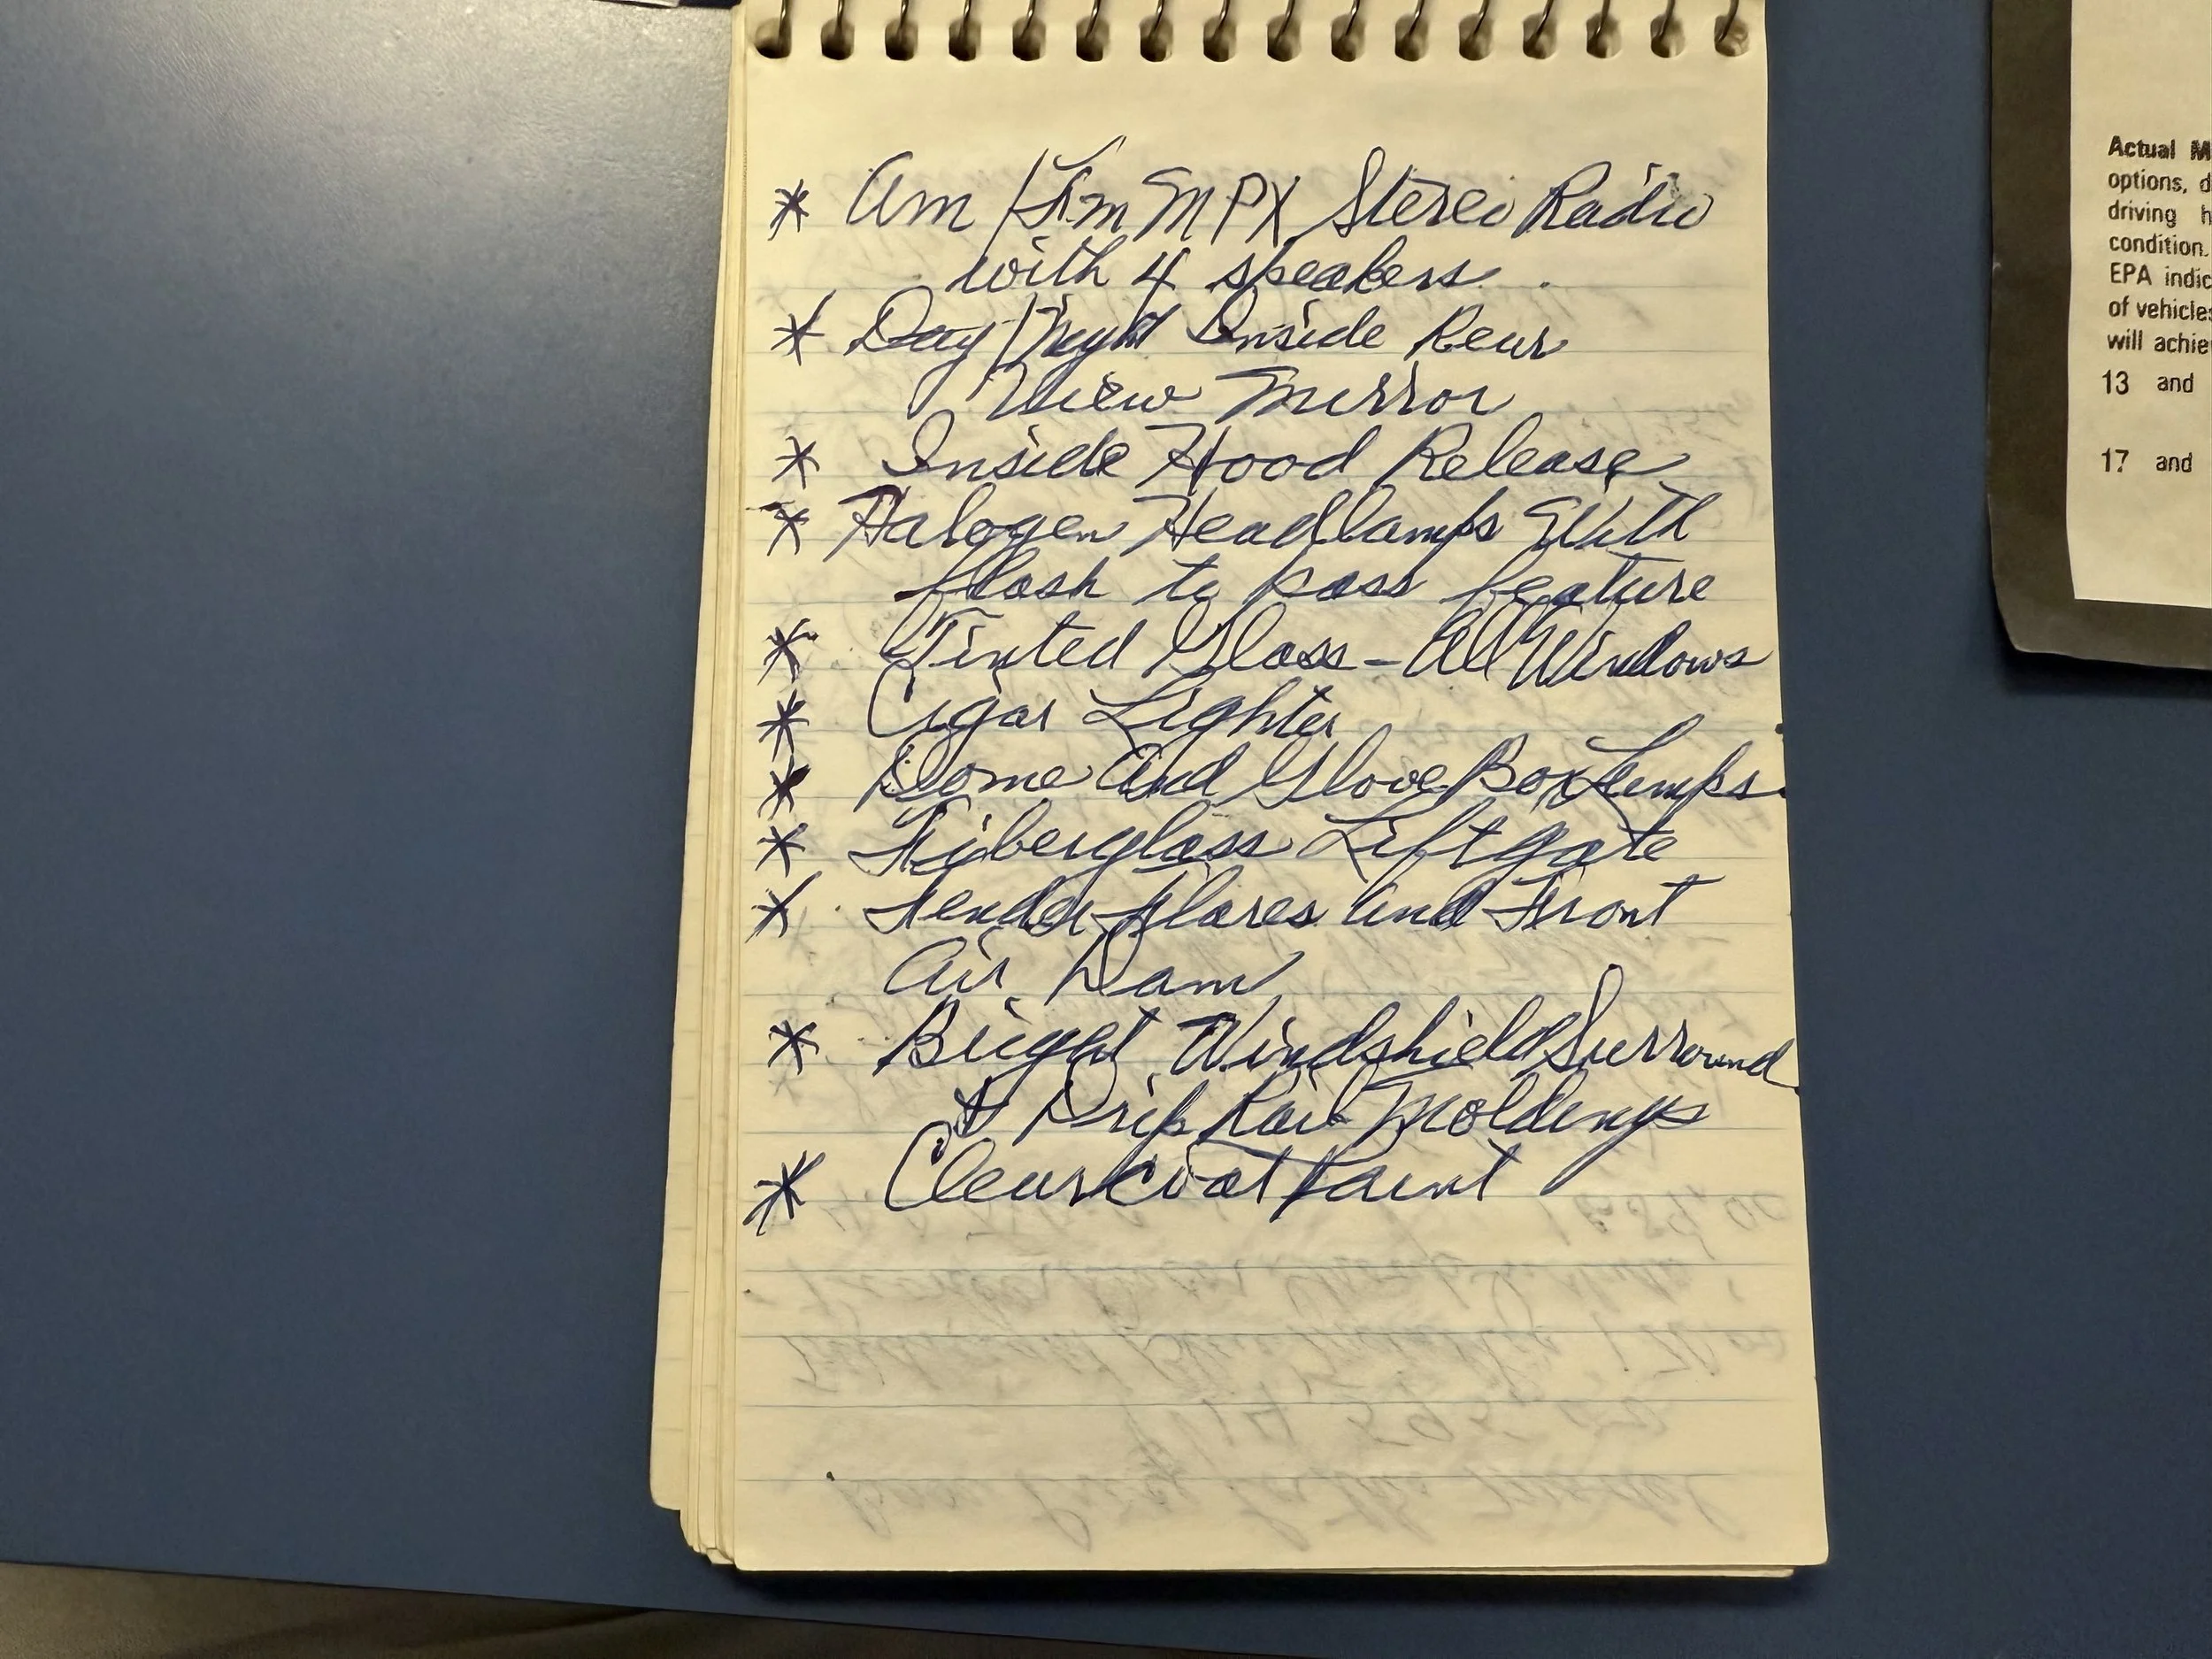 * Am/Fm MPX Stereo Radio
with 4 speakers
* Day/Night Inside Rear
View Mirror
* Inside Hood Release
* Halogen Headlamps With
flash to pass feature
* Tinted Glass - All Windows
* Cigar Lighter
* Dome And Glove Box Lamps
* Fiberglass Liftgate
* Fender flares and Front
Air Dam
* Bright Windshield Surround
& Drip Rail Moldings
* Clearcoat Paint
Actual
options,
driving
condition.
EPA
of vehicles
will
13 and
17 and